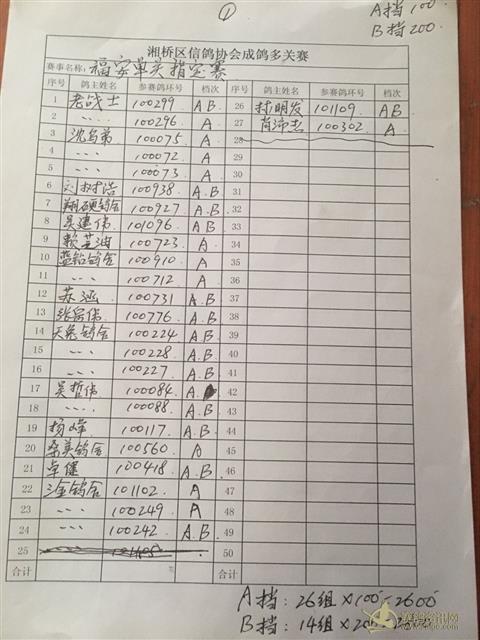 ①
A挡100
B挡200
湘桥区信鸽协会成鸽多关赛
赛事名称: 福安单关指定赛
序号 鸽主姓名 参赛鸽环号 档次 序号 鸽主姓名 参赛鸽环号 档次
1 老战士 100299 AB 26 林明发 101109 AB
2 〃 100296 A 27 肖沛志 100302 A
3 沈乌弟 100075 A 28
4 〃 100072 A 29
5 〃 100073 A 30
6 刘树浩 100938 A.B 31
7 翔硕鸽舍 100927 A.B 32
8 吴建伟 101096 A.B 33
9 赖芝油 100723 A 34
10 蓝铅鸽舍 100910 A 35
11 〃 100712 A 36
12 苏涵 100731 A.B 37
13 张宗伟 100776 A.B 38
14 天意鸽舍 100224 A.B 39
15 〃 100228 A.B 40
16 〃 100227 A.B 41
17 吴哲伟 100084 A. 42
18 〃 100088 A.B 43
19 杨峰 100117 A.B 44
20 桑美鸽舍 100560 A 45
21 卓健 100418 A.B 46
22 三金鸽舍 101102 A 47
23 〃 100249 A 48
24 〃 100242 A.B 49
25 50
合计 合计
A挡: 26组×100=2600
B挡: 14组×200=